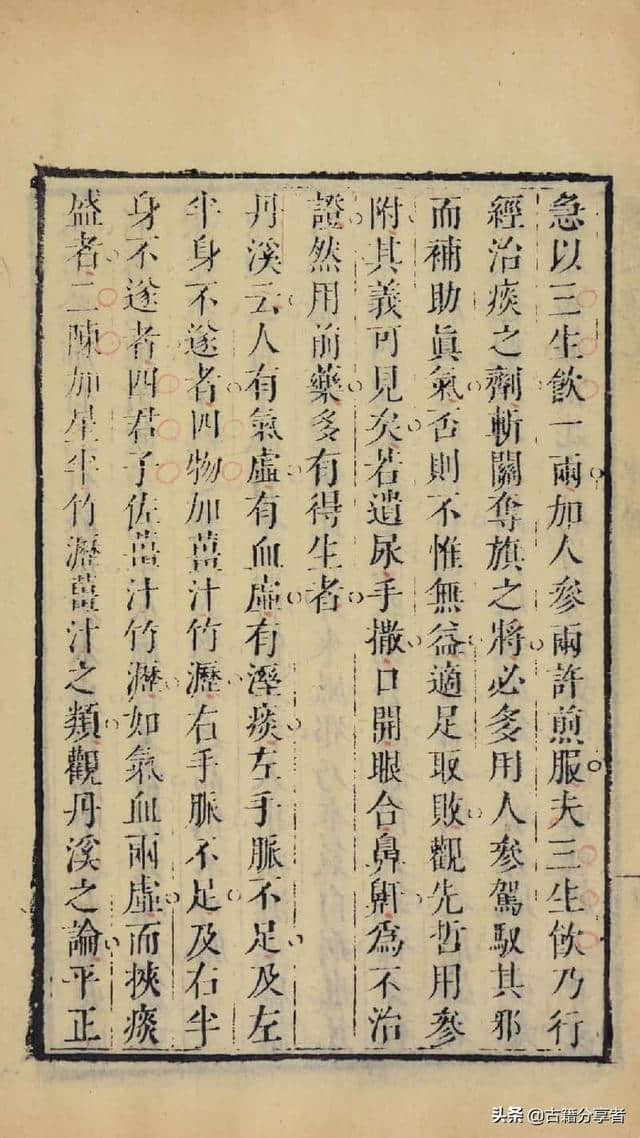 急以三生飲一兩加人參兩許煎服夫三生飲乃行
經治痰之劑斬關奪旗之將必多用人參駕馭其邪
而補助眞氣否則不惟無益適足取敗觀先哲用參
附其義可見矣若遺尿手撒口開眼合鼻鼾爲不治
證然用前藥多有得生者
丹溪云人有氣虛有血虛有溼痰左手脈不足及左
半身不遂者四物加薑汁竹瀝右手脈不足及右半
身不遂者四君子佐薑汁竹瀝如氣血兩虛而挾痰
盛者二陳加星半竹瀝薑汁之類觀丹溪之論平正
头条 @古籍分享者